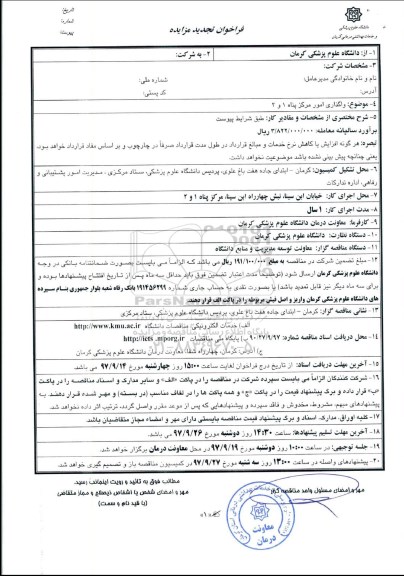 تاریخ:
شماره:
پیوست:
فراخوان تجدید مزایده
دانشگاه علوم پزشکی
و خدمات بهداشتی درمانی کرمان
۱- از: دانشگاه علوم پزشکی کرمان
۲- به شرکت:
۳- مشخصات شرکت:
نام و نام خانوادگی مدیرعامل:
شماره ملی:
آدرس:
کد پستی:
۴- موضوع: واگذاری امور مرکز پناه ۱ و ۲
۵- شرح مختصری از مشخصات و مقادیر کار: طبق شرایط پیوست
برآورد سالیانه معامله: ۳/۸۲۲/۰۰۰/۰۰۰ ریال
تبصره: هر گونه افزایش یا کاهش نرخ خدمات و مبالغ قرارداد در طول مدت قرارداد صرفاً در چارچوب و بر اساس مفاد قرارداد خواهد بود،
یعنی چنانچه پیش بینی نشده باشد موضوعیت نخواهد داشت.
۶- محل تشکیل کمیسیون: کرمان – ابتدای جاده هفت باغ علوی، پردیس دانشگاه علوم پزشکی، ستاد مرکزی، مدیریت امور پشتیبانی و
رفاهی، اداره تدارکات
۷- محل اجرای کار: خیابان ابن سینا، نبش چهارراه ابن سینا، مرکز پناه ۱ و ۲
۸- مدت اجرای کار: ۱ سال
۹- کارفرما: معاونت درمان دانشگاه علوم پزشکی کرمان
۱۰- دستگاه نظارت: دانشگاه علوم پزشکی کرمان
۱۱- دستگاه مناقصه گزار: معاونت توسعه مدیریت و منابع دانشگاه
۱۲- مبلغ تضمین شرکت در مناقصه به مبلغ ۱۹۱/۱۰۰/۰۰۰ ریال می باشد که الزاماً می بایست بصورت ضمانتنامه بانکی در وجه
دانشگاه علوم پزشکی کرمان ارسال شود (توضیحاً مدت اعتبار تضمین فوق باید حداقل سه ماه پس از تاریخ افتتاح پیشنهادها بوده و
برای سه ماه دیگر نیز قابل تمدید باشد) یا بصورت نقدی به حساب جاری شماره ۱۹۱۴۵۶۲۹۹ بانک رفاه شعبه بلوار جمهوری بنام سپرده
های دانشگاه علوم پزشکی کرمان واریز و اصل فیش مربوطه را در پاکت الف قرار دهند.
۱۳- نشانی مناقصه گزار: کرمان – ابتدای جاده هفت باغ علوی، پردیس دانشگاه علوم پزشکی، ستاد مرکزی
الف) خدمات الکترونیکی: مناقصات دانشگاه http://www.kmu.ac.ir
۱۴- محل دریافت اسناد مناقصه شماره: ۹۰۲۷/۹/۹۷ ب) پایگاه ملی مناقصات http://iets.mporg.ir
ج) آدرس: کرمان، چهارراه شفا، معاونت درمان دانشگاه علوم پزشکی کرمان
۱۵- آخرین مهلت دریافت اسناد: از تاریخ درج فراخوان لغایت ساعت ۱۵:۰۰ روز چهارشنبه مورخ ۹۷/۹/۱۴ می باشد.
۱۶- شرکت کنندگان الزاماً می بایست سپرده شرکت در مناقصه را در پاکت «الف» و سایر مدارک و اسناد مناقصه را در پاکت
«ب» قرار داده و برگ پیشنهاد قیمت را در پاکت «ج» و همه پاکت ها را در لفاف مناسب (در بسته) و مهر شده قرار دهند. به
پیشنهادهای مبهم، مشروط، مخدوش و فاقد سپرده و پیشنهادهایی که پس از موعد مقرر واصل گردد، ترتیب اثر داده نخواهد شد.
۱۷- کلیه اوراق، مدارک، اسناد و برگ پیشنهاد قیمت مناقصه بایستی دارای مهر و امضاء مجاز متقاضیان باشد.
۱۸- آخرین مهلت تسلیم پیشنهادها: ساعت ۱۴:۳۰ روز دوشنبه مورخ ۹۷/۹/۲۶ می باشد.
۱۹- جلسه توجیهی: در ساعت ۱۰:۰۰ روز دوشنبه مورخ ۹۷/۹/۱۹ در محل معاونت درمان برگزار خواهد شد.
۲۰- پیشنهادهای واصله در ساعت ۱۳:۰۰ روز سه شنبه مورخ ۹۷/۹/۲۷ در کمیسیون مناقصه باز و تصمیم گیری خواهد شد.
مهر و امضای مسئول واحد مناقصه گزار
مطالب فوق به تائید و رویت اینجانب رسید.
مهر و امضای شخص یا اشخاص ذیصلاح و مجاز متقاضی
(با قید نام و سمت)
معاونت
درمان